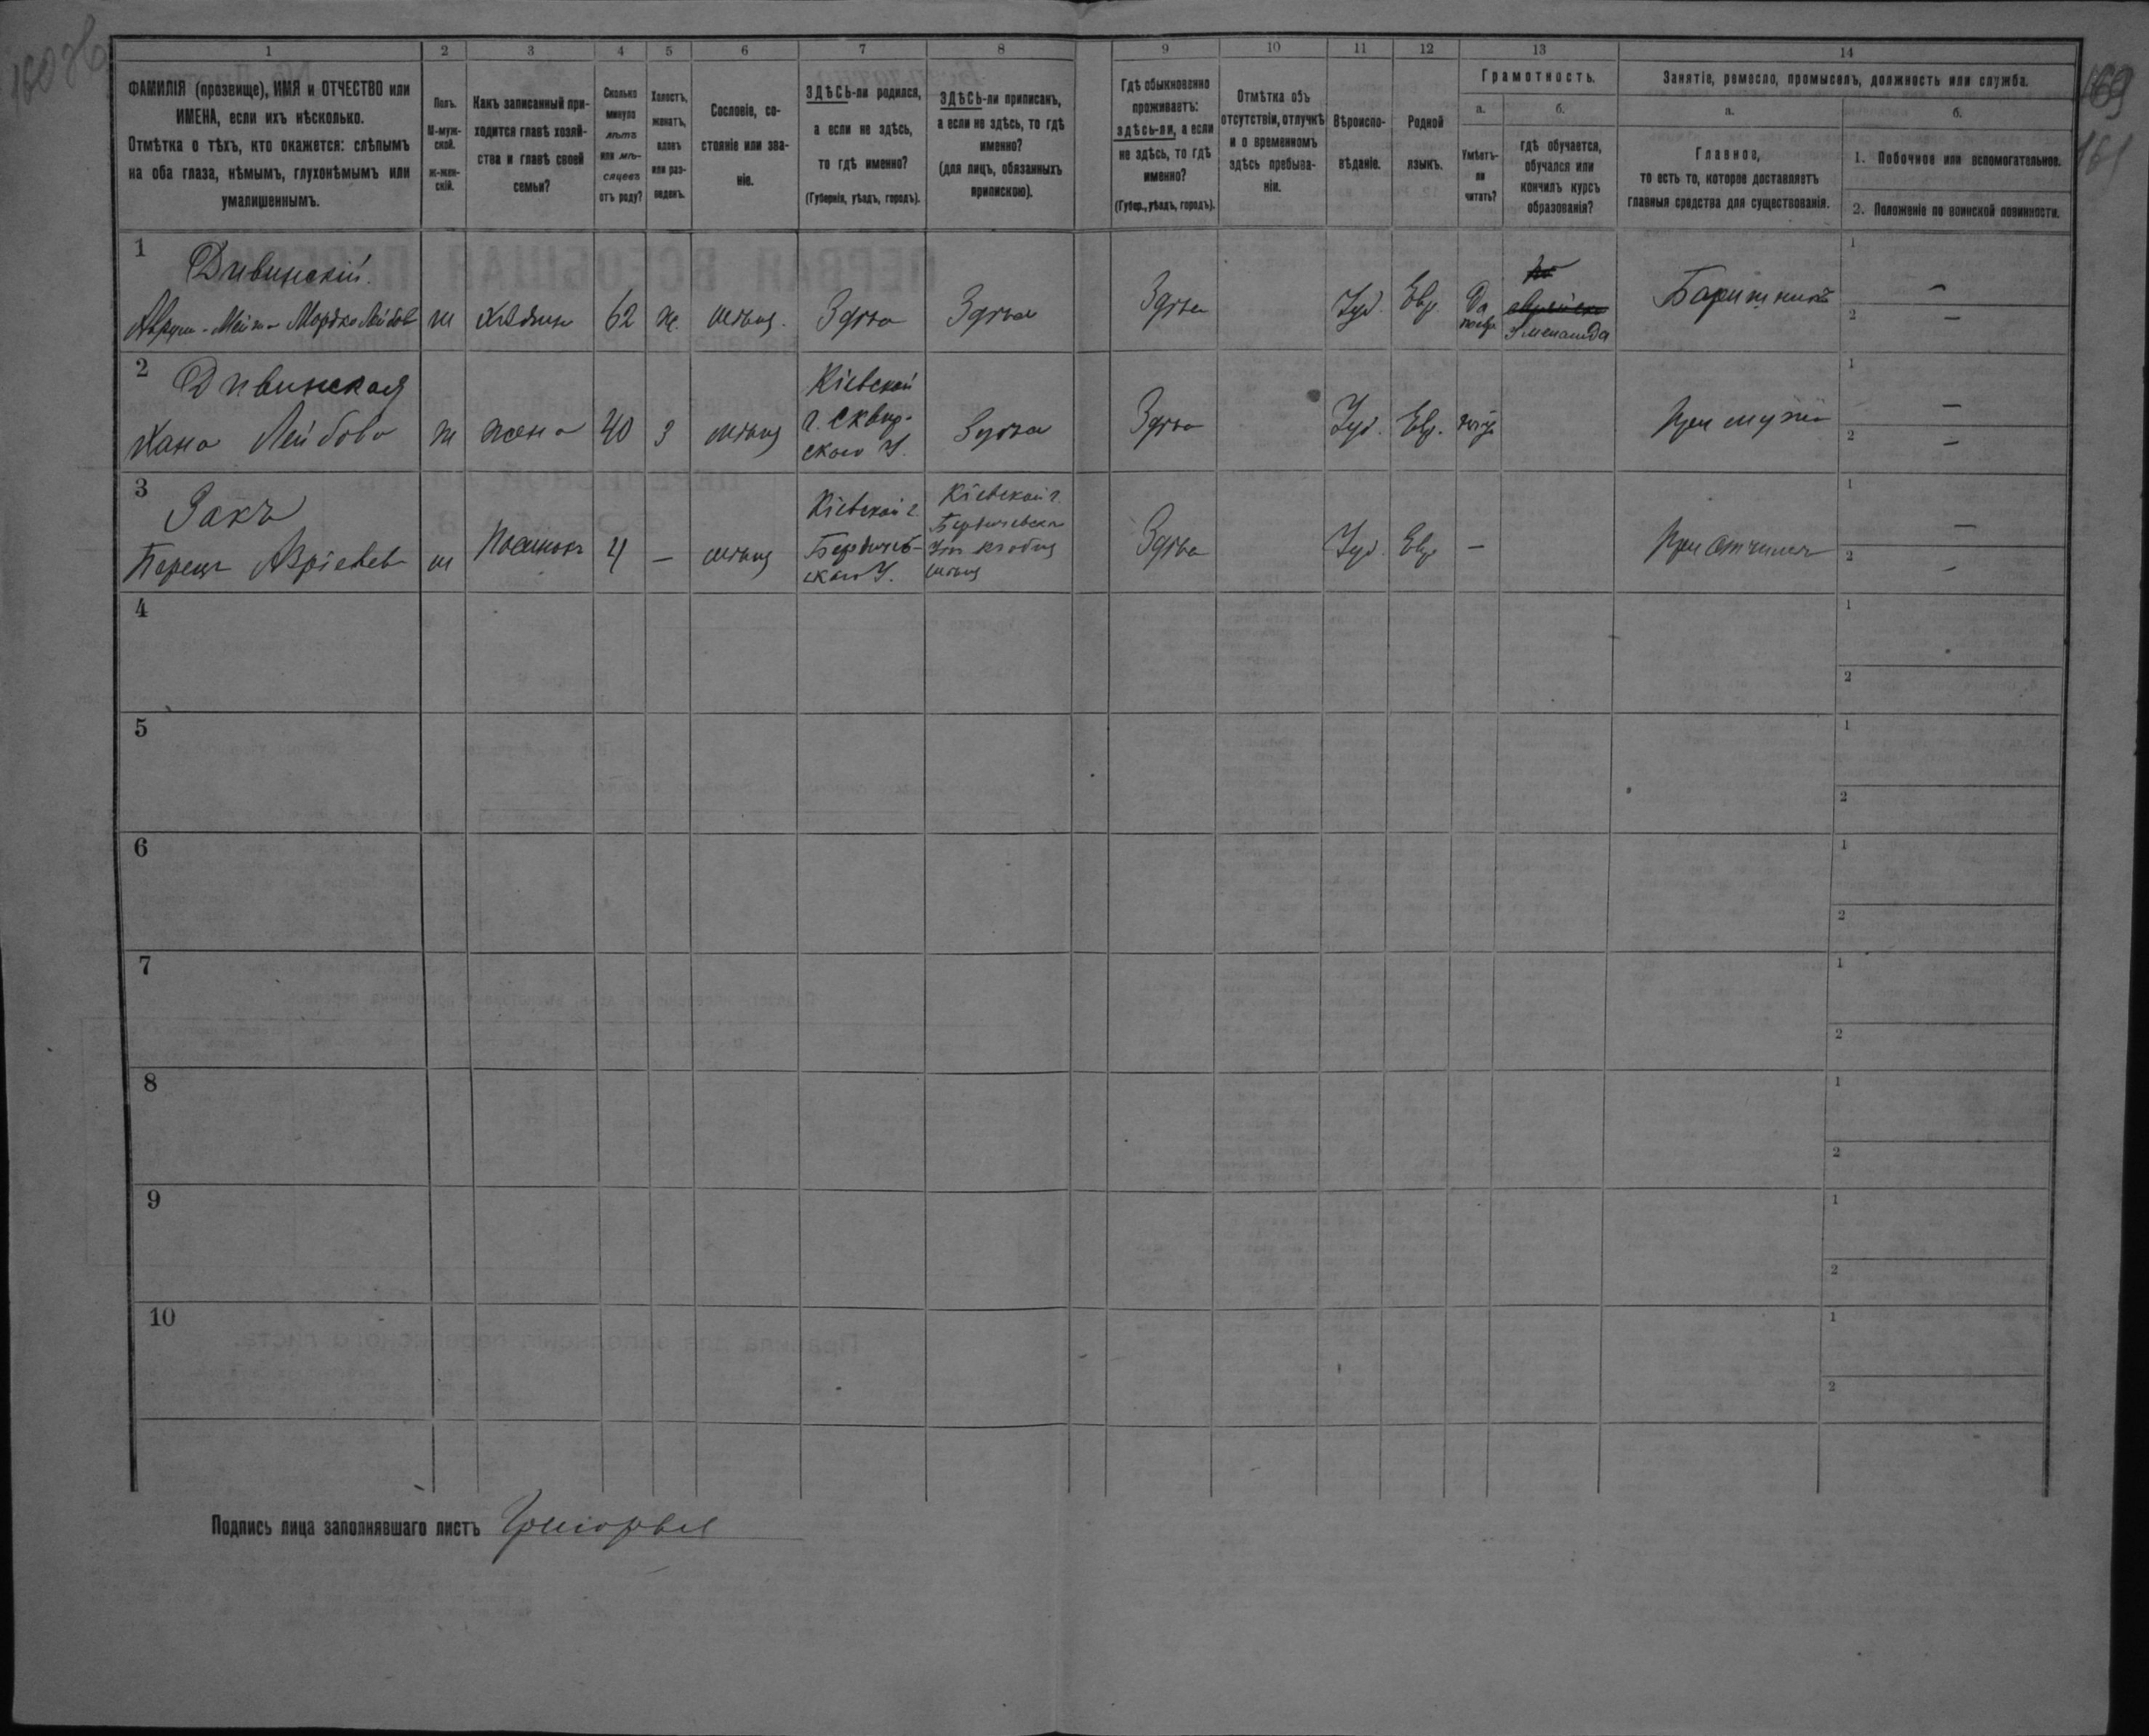 160 об
169
161
1 2 3 4 5 6 7 8 9 10 11 12 13 14
ФАМИЛІЯ (прозвище), ИМЯ и ОТЧЕСТВО или
ИМЕНА, если ихъ нѣсколько.
Отмѣтка о тѣхъ, кто окажется: слѣпымъ
на оба глаза, нѣмымъ, глухонѣмымъ или
умалишеннымъ.
Полъ.
М-муж-
ской.
Ж-жен-
скій.
Какъ записанный при-
ходится главѣ хозяй-
ства и главѣ своей
семьи?
Сколько
минуло
лѣтъ
или мѣ-
сяцевъ
отъ роду?
Холостъ,
женатъ,
вдовъ
или раз-
веденъ.
Сословіе, со-
стояніе или зва-
ніе.
ЗДѢСЬ-ли родился,
а если не здѣсь,
то гдѣ именно?
(Губернія, уѣздъ, городъ).
ЗДѢСЬ-ли приписанъ,
а если не здѣсь, то гдѣ
именно?
(для лицъ, обязанныхъ
припискою).
Гдѣ обыкновенно
проживаетъ:
здѣсь-ли, а если
не здѣсь, то гдѣ
именно?
(Губер., уѣздъ, городъ).
Отмѣтка объ
отсутствіи, отлучкѣ
и о временномъ
здѣсь пребыва-
ніи.
Вѣроиспо-
вѣданіе.
Родной
языкъ.
Грамотность.
а.
Умѣетъ-
ли
читать?
б.
гдѣ обучается,
обучался или
кончилъ курсъ
образованія?
Занятіе, ремесло, промыселъ, должность или служба.
а.
Главное,
то есть то, которое доставляетъ
главныя средства для существованія.
б.
1. Побочное или вспомогательное.
2. Положеніе по воинской повинности.
1
Дивинскій.
Аврум-Мейша Мордко Лейбов
м хозяин 62 ж. мѣщ. Здѣсь Здѣсь Здѣсь Іуд. Евр. Да
У меламда
Барышникъ
1 –
2 –
2
Дивинская
Хана Лейбова
ж жена 40 з мѣщ
Кіевской
г. Сквир-
скаго У.
Здѣсь Здѣсь Іуд. Евр.
При мужѣ
1 –
2 –
3
Закъ
Перецъ Азріелев
м Пасынокъ 4 – мѣщ
Кіевской г.
Бердичев-
скаго У.
Кіевской г.
Бердичевскаго
мѣщ
Здѣсь Іуд. Евр –
При отчимѣ
1 –
2 –
4
1
2
5
1
2
6
1
2
7
1
2
8
1
2
9
1
2
10
1
2
Подпись лица заполнявшаго листъ